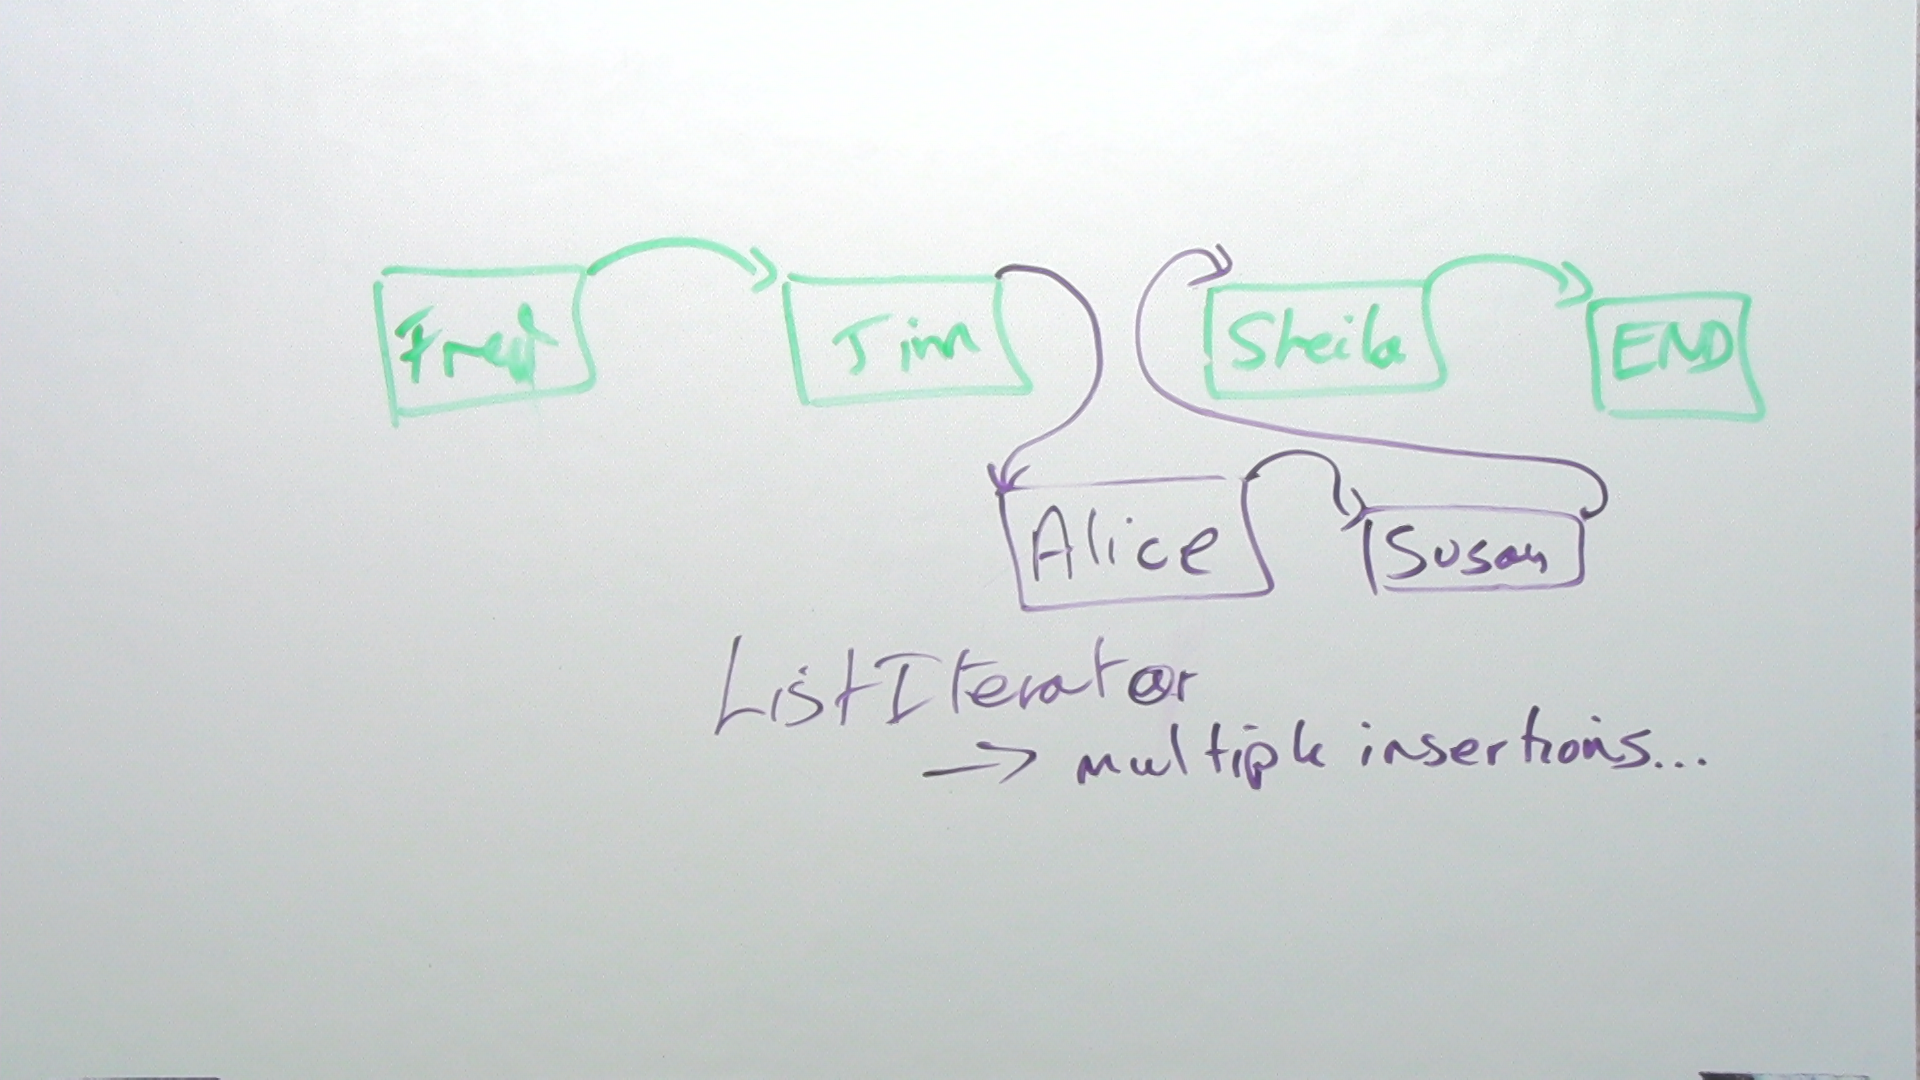 Fred Jim Sheila END
Alice Susan
ListIterator
→ multiple insertions...